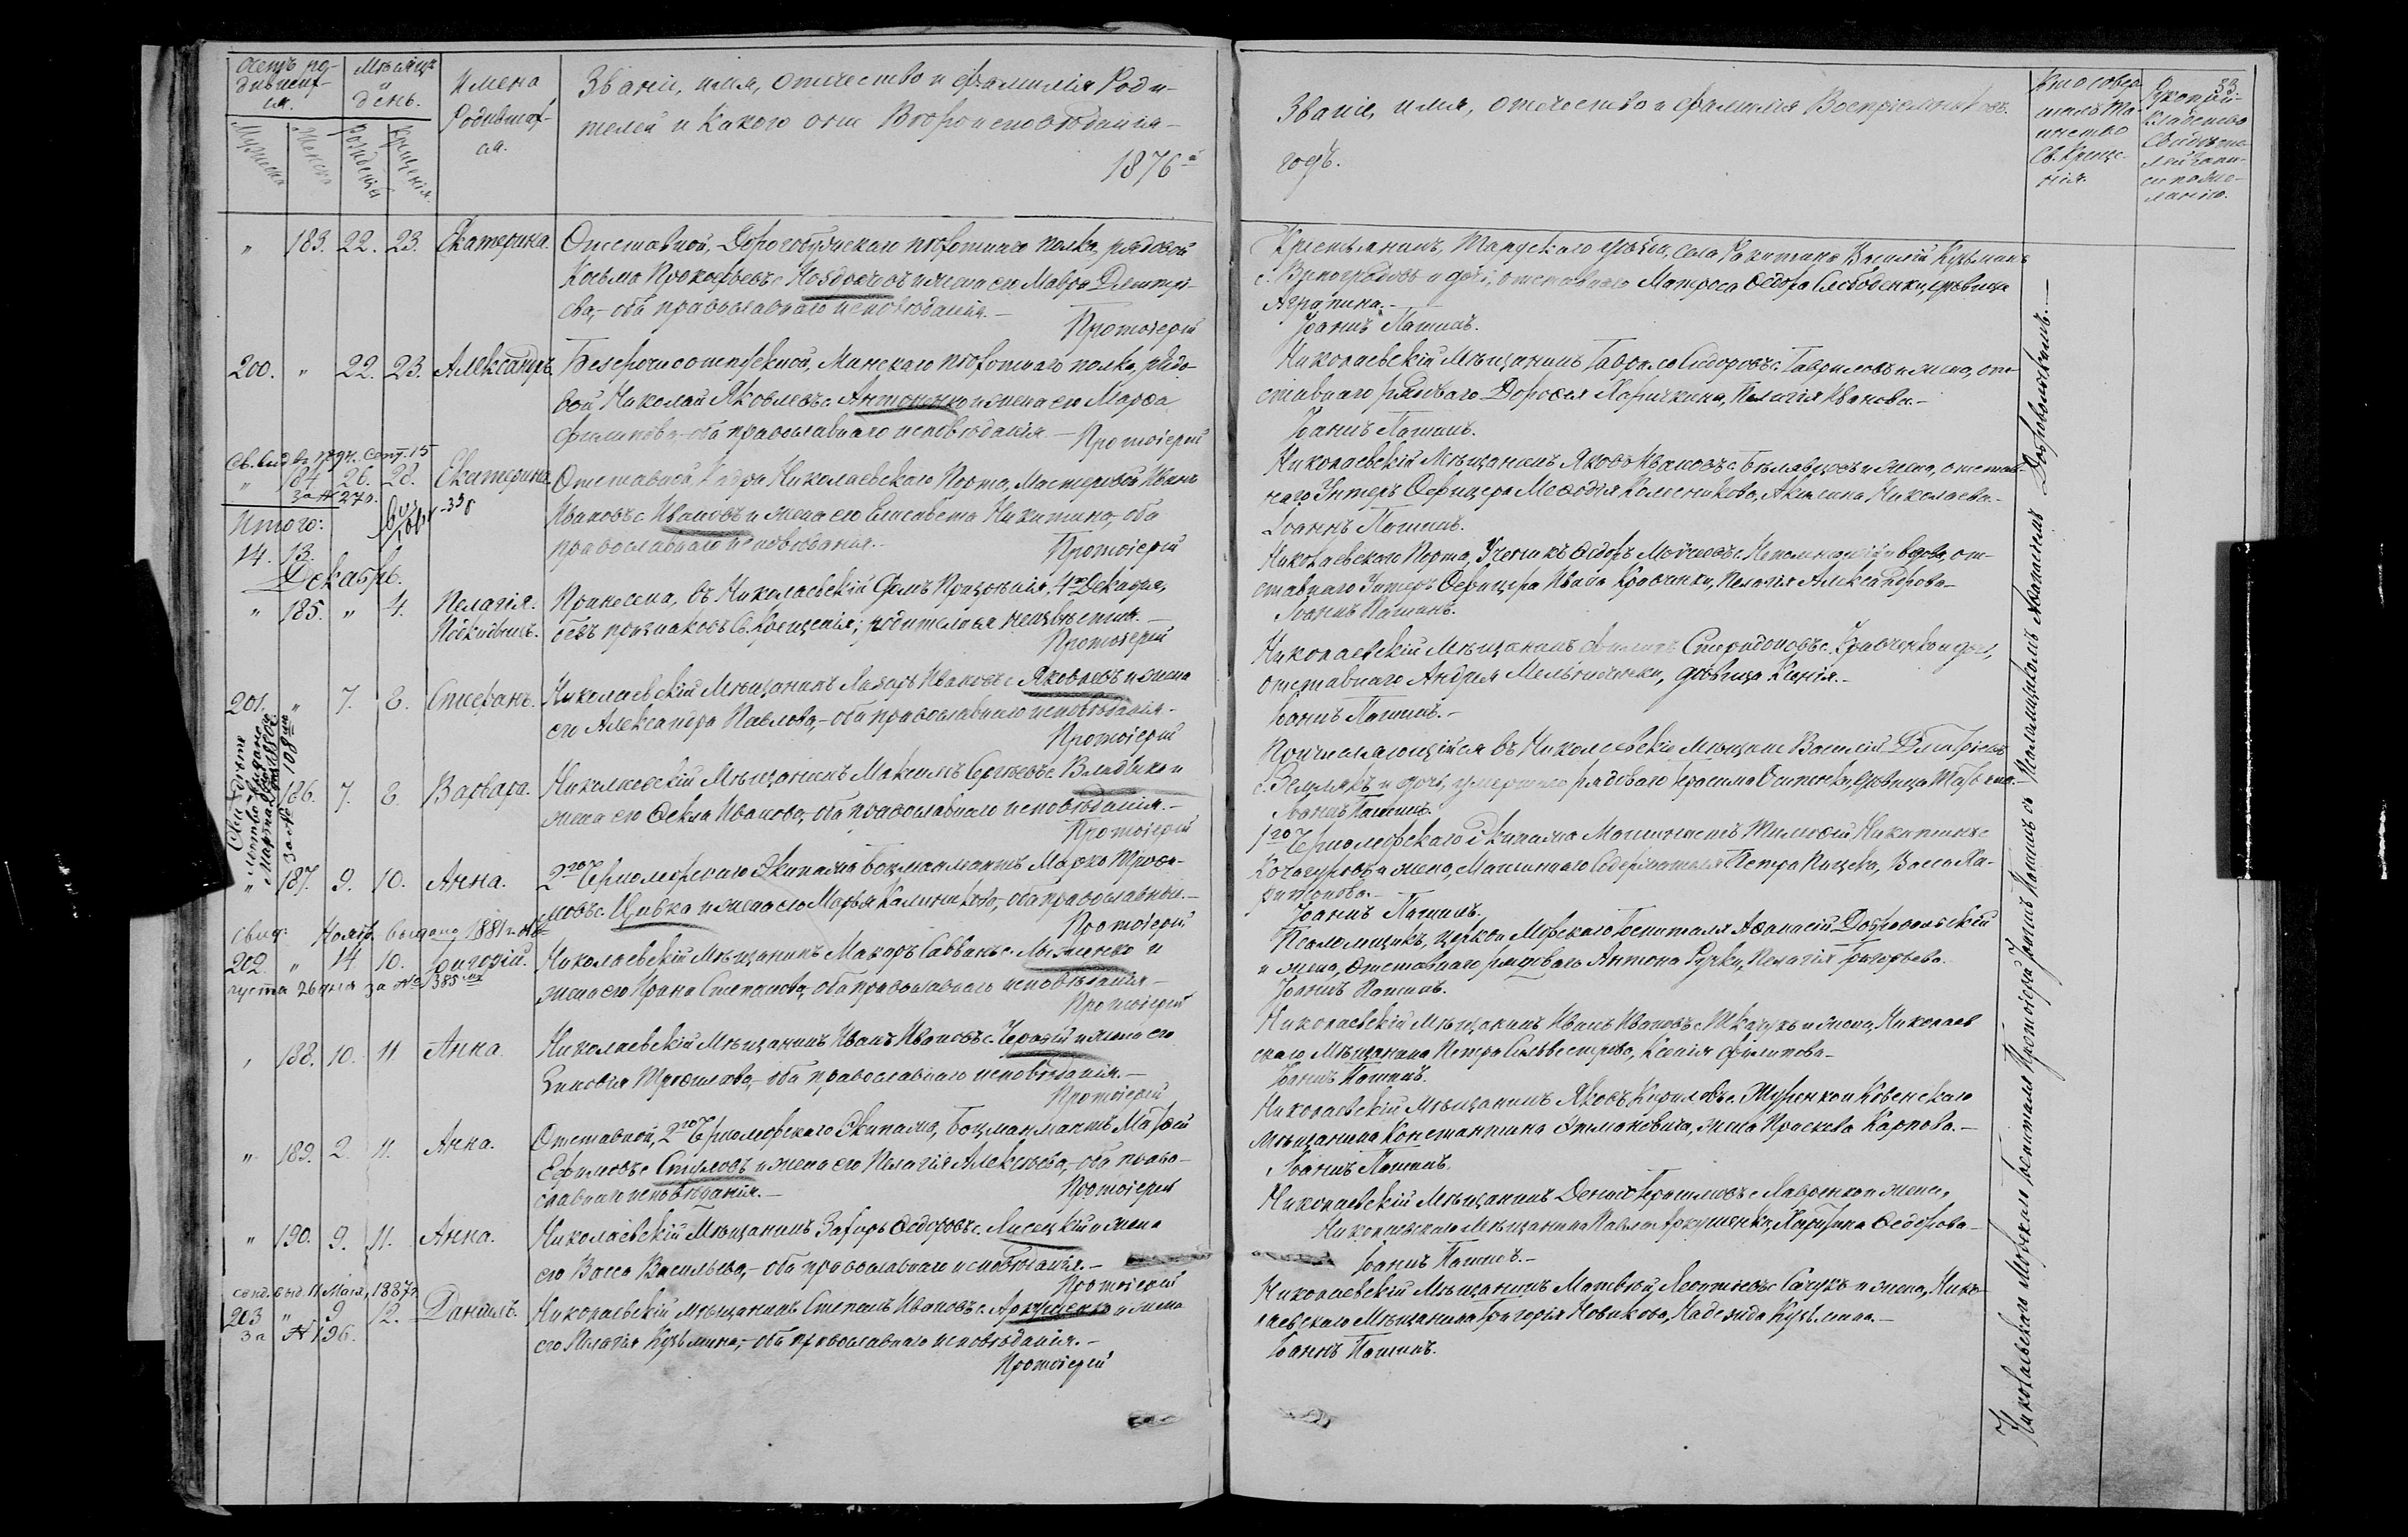 Счетъ ро-
дивших-
ся.
Мѣсяцъ
и
день.
Имена
Родивших-
ся.
Званіе, имя, отчество и фамилія Роди-
телей и какого они Вѣроисповѣданія
1876й
Мужеска
Женска
Рожденія
Крещенія.
" 183. 22. 23. Екатерина. Отставной, Дорогобужскаго пѣхотнаго полка, рядовой
Козьма Прокофьевъ с. Ноздрачевъ и жена его Мавра Дмитрі-
ева,- оба православнаго исповѣданія.-
Протоіерей
200. " 22. 23. Александръ. Безсрочноотпускной, Минскаго пѣхотнаго полка, рядо-
вой Николай Яковлевъ с. Антоненко и жена его Марѳа
Филипова,- оба православнаго исповѣданія.- Протоіерей
" 184 26. 28. Екатерина. Отставной, Николаевскаго Порта, Мастеровой Иванъ
за № 270.
Ивановъ с. Ивановъ и жена его Елисавета Никитина, оба
православнаго исповѣданія.- Протоіерей
Итого:
14. 13.
Декабрь.
" 185. " 4. Пелагія. Принесена, въ Николаевскій Домъ Призрѣнія, 4го Декабря,
Подкидышъ. безъ признаковъ Св. Крещенія; родители ея неизвѣстны.-
Протоіерей
201. " 7. 8. Стефанъ. Николаевскій Мѣщанинъ Лазарь Ивановъ с. Яковлевъ и жена
его Александра Павлова,- оба православнаго исповѣданія.-
Протоіерей
186. 7. 8. Варвара. Николаевскій Мѣщанинъ Максимъ Сергѣевъ с. Владыко и
жена его Ѳекла Иванова,- оба православнаго исповѣданія.-
Протоіерей
Свидѣтель-
ство выдано
Марта 1880 г.
за № 108мъ
" 187. 9. 10. Анна. 2го Черноморскаго Экипажа Боцманматъ Марко Троѳи-
мовъ с. Цивка и жена его Марья Калиникова,- оба православные.-
Протоіерей
свид. Нояб. выдано 1881 г. Ав-
202. " 14 10. Григорій. Николаевскій Мѣщанинъ Макаръ Саввинъ с. Лысенко и
густа 26 дня за № 1385мъ
жена его Ирина Степанова,- оба православнаго исповѣданія.-
Протоіерей
" 188. 10. 11 Анна. Николаевскій Мѣщанинъ Иванъ Ивановъ с. Чернѣй и жена его
Зиновія Троѳимова,- оба православнаго исповѣданія.-
Протоіерей
" 189. 2. 11. Анна. Отставной, 2го Черноморскаго Экипажа, Боцманматъ Матѳей
Ефимовъ с. Стуловъ и жена его Пелагія Алексѣева,- оба право-
славнаго исповѣданія.- Протоіерей
" 190. 9. 11. Анна. Николаевскій Мѣщанинъ Захаръ Ѳедоровъ с. Лисецкій и жена
его Васса Васильева,- оба православнаго исповѣданія.-
Протоіерей
свид. выд. 11 Мая, 1887 г.
203 " 9 12. Даніилъ. Николаевскій Мѣщанинъ Степанъ Ивановъ с. Аркушенко и жена
за № 196.
его Пелагія Кузьмина,- оба православнаго исповѣданія.-
Протоіерей
33
Званіе, имя, отчество и фамилія Воспріемниковъ.
годъ.
Кто совер-
шалъ Та-
инство
Св. Креще-
нія.
Рукопри-
кладство
Свидѣте-
лей запи-
си по же-
ланію.
Крестьянинъ, Тарускаго уѣзда, Села Василій Кузьминъ
с. Виноградовъ и дочь, отставнаго Матроса Ѳедора Слободенки, дѣвица
Агрипина.-
Іоаннъ Пашинъ.
Николаевскій Мѣщанинъ Гаврило Сидоровъ с. Гавриловъ и жена, от-
ставнаго рядоваго Дороѳея Харичкина, Пелагія Иванова.-
Іоаннъ Пашинъ.
Николаевскій Мѣщанинъ Яковъ Ивановъ с. Бѣлявцовъ и жена, отстав-
наго Унтеръ Офицера Меѳодія Колесникова, Акилина Николаева.-
Іоаннъ Пашинъ.
Николаевскаго Порта, Ученикъ Ѳедоръ с. Непомнящій и вдова, от-
ставнаго Унтеръ Офицера Ивана Кравченки, Пелагія Александрова-
Іоаннъ Пашинъ.
Николаевскій Мѣщанинъ Филипъ Спиридоновъ с. Кравченко и дочь,
отставнаго Андрея Мельниченки, дѣвица Ксенія.-
Іоаннъ Пашинъ.-
Причисляющійся въ Николаевскіе Мѣщане Василій Дмитріевъ
с. Землякъ и дочь, умершаго рядоваго Герасима Осипенки, дѣвица Татьяна.
Іоаннъ Пашинъ.
1го Черноморскаго Экипажа Машинистъ Тимоѳей Никитинъ с.
Кочегуровъ и жена, Машиннаго Содержателя Петра Пицева, Васса Ха-
ритонова.-
Іоаннъ Пашинъ.
Псаломщикъ, церкви Морскаго Госпиталя Аѳанасій Добровольскій
и жена, Отставнаго рядоваго Антона Рудки, Пелагія Григорьева.
Іоаннъ Пашинъ.
Николаевскій Мѣщанинъ Иванъ Ивановъ с. Ткачукъ и жена, Николаев-
скаго Мѣщанина Петра Сильвестрова, Ксенія Филипова-
Іоаннъ Пашинъ.
Николаевскій Мѣщанинъ Яковъ Кириловъ с. Журенко и Ковенскаго
Мѣщанина Константина жена Праскева Карпова.-
Іоаннъ Пашинъ.
Николаевскій Мѣщанинъ Денисъ Герасимовъ с. Лавренко и жена,
Николаевскаго Мѣщанина Павла Аркушенки, Харитина Ѳедорова-
Іоаннъ Пашинъ.-
Николаевскій Мѣщанинъ Матвѣй Леонтіевъ с. Сачукъ и жена, Нико-
лаевскаго Мѣщанина Григорія Новикова, Надежда Кузьмина.-
Іоаннъ Пашинъ.
Николаевскаго Морскаго Госпиталя Протоіерей Іоаннъ Пашинъ съ Псаломщикомъ Аѳанасіемъ Добровольскимъ.-